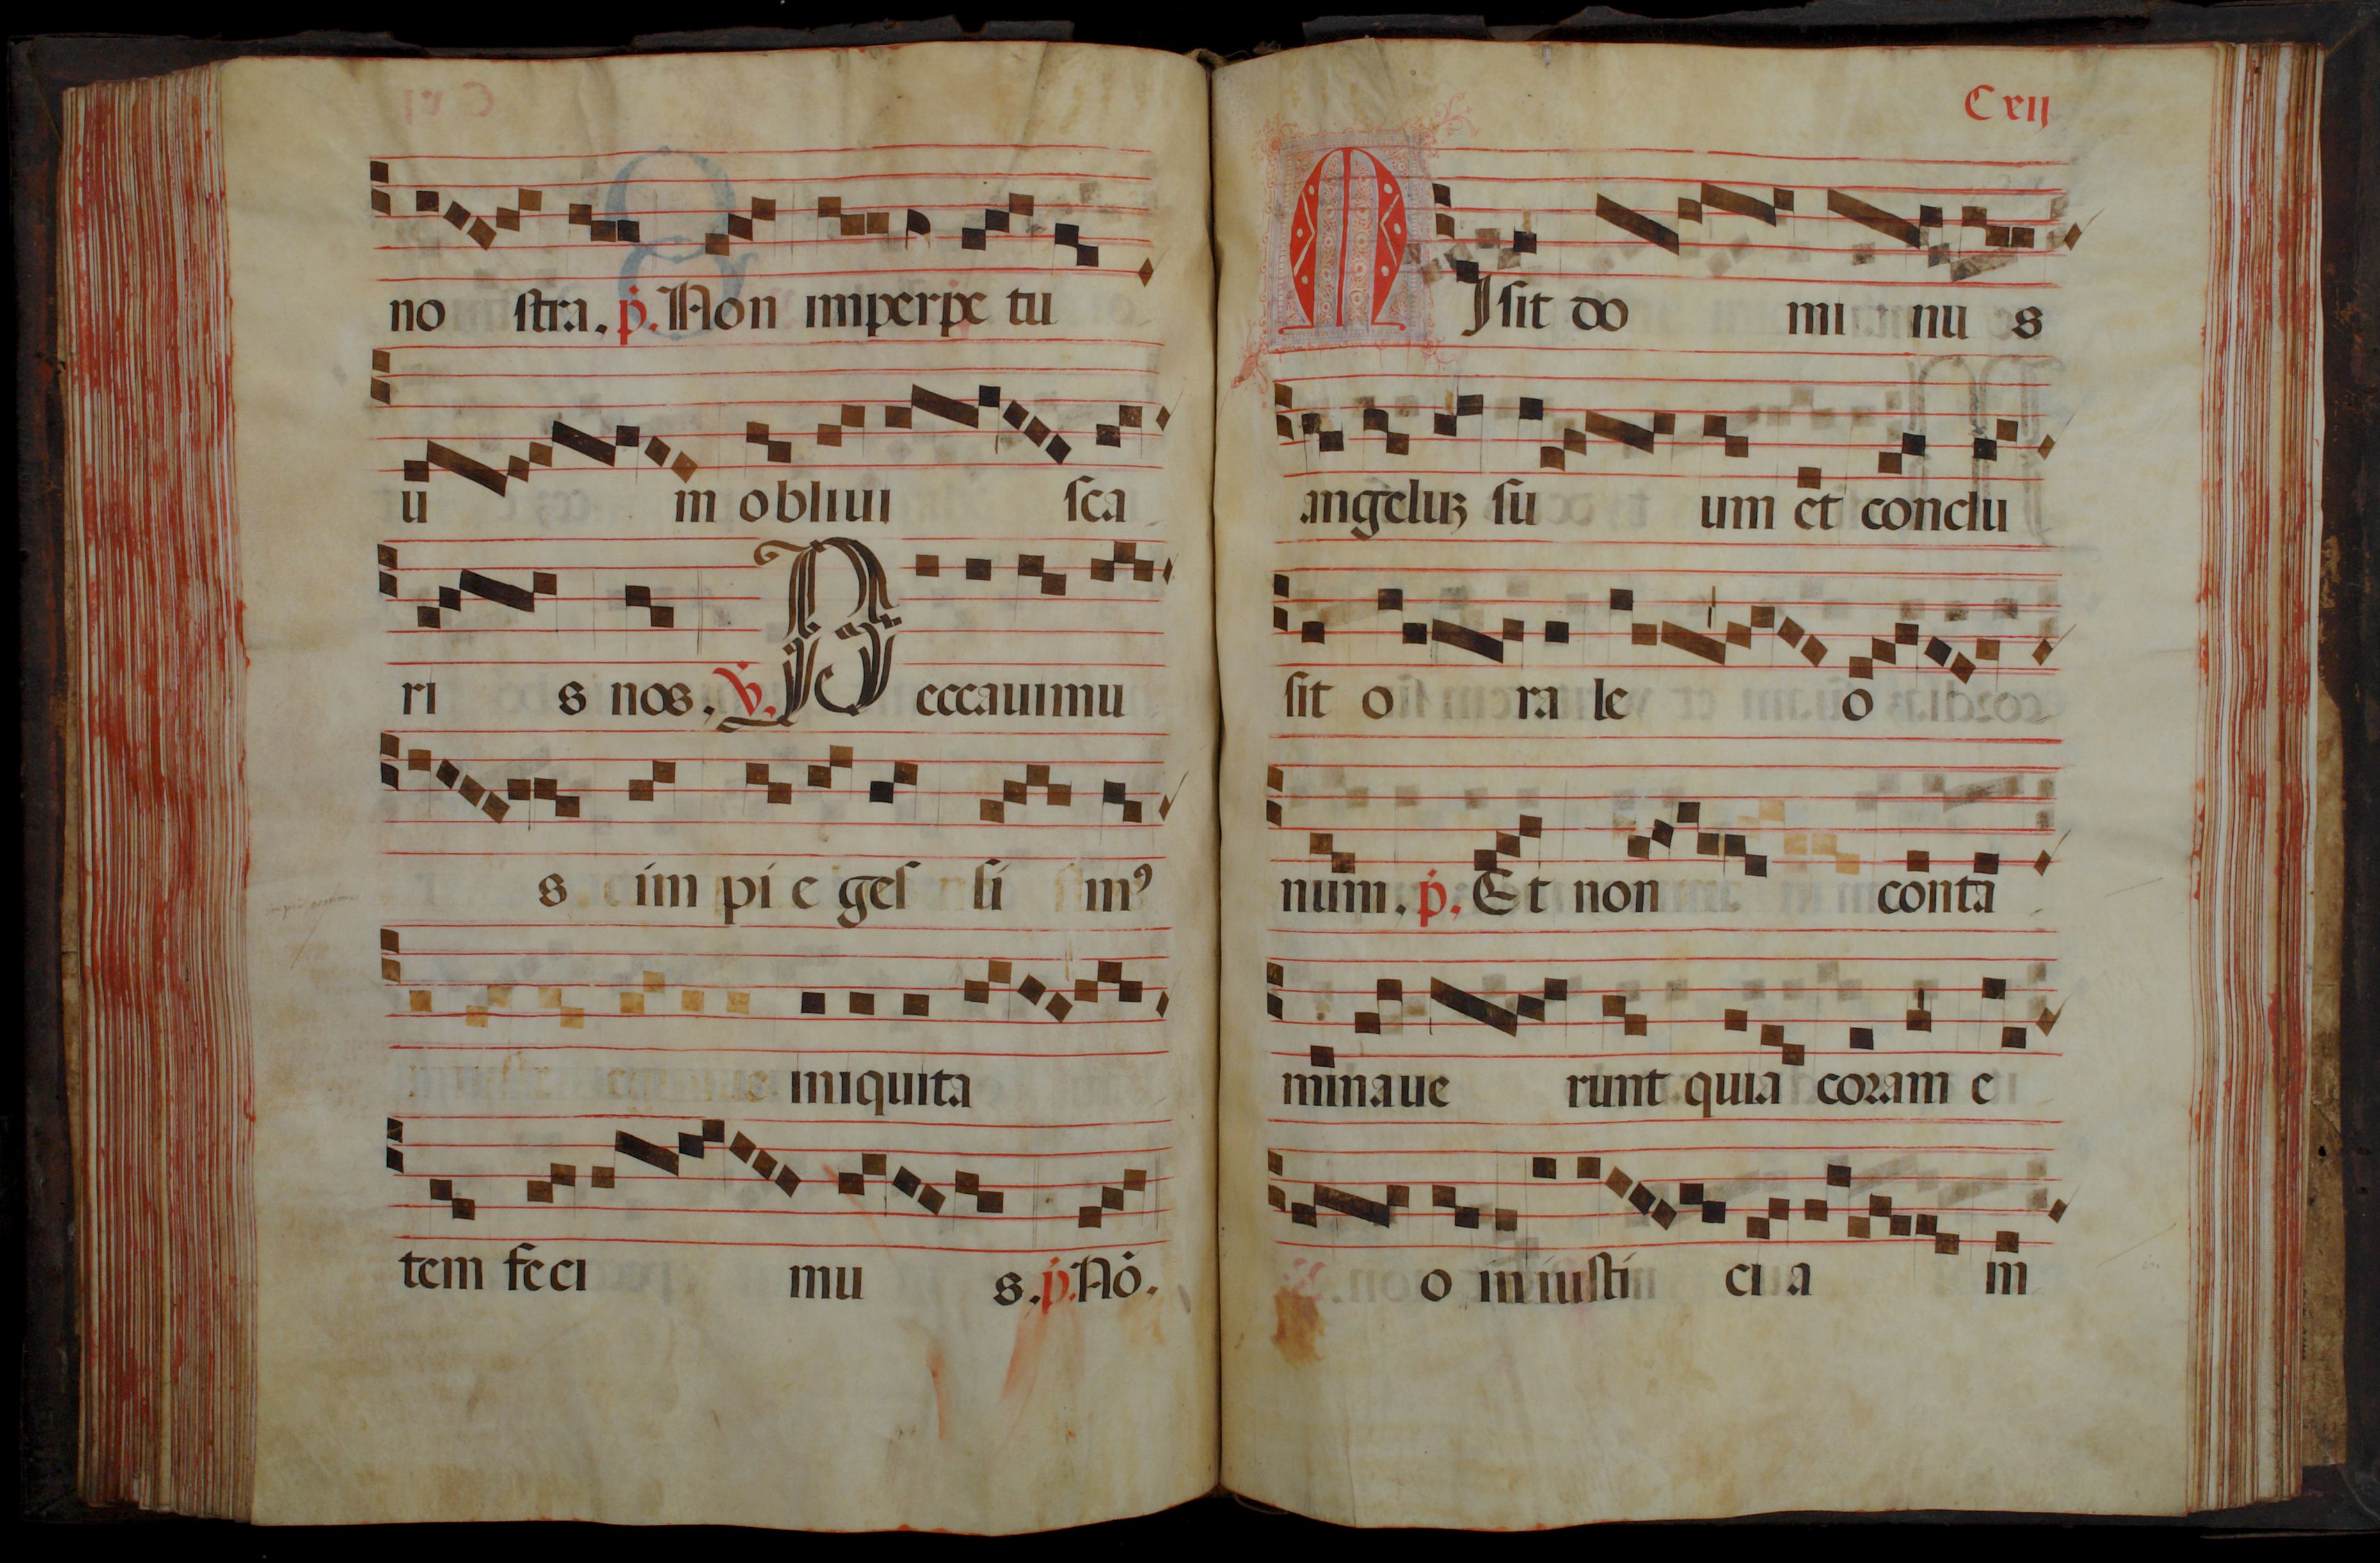 no stra. p. Non imperpe tu
u m obliui sca
ri s nos. v. Peccauimu
s im pi e ges si m⁹
iniquita
tem feci mu s. p. Nō.
Cxij
MIsit do mi nu s
angeluʒ su um et conclu
sit o ra le o
num. p. Et non conta
minaue runt quia coram e
o iniusti ci a in